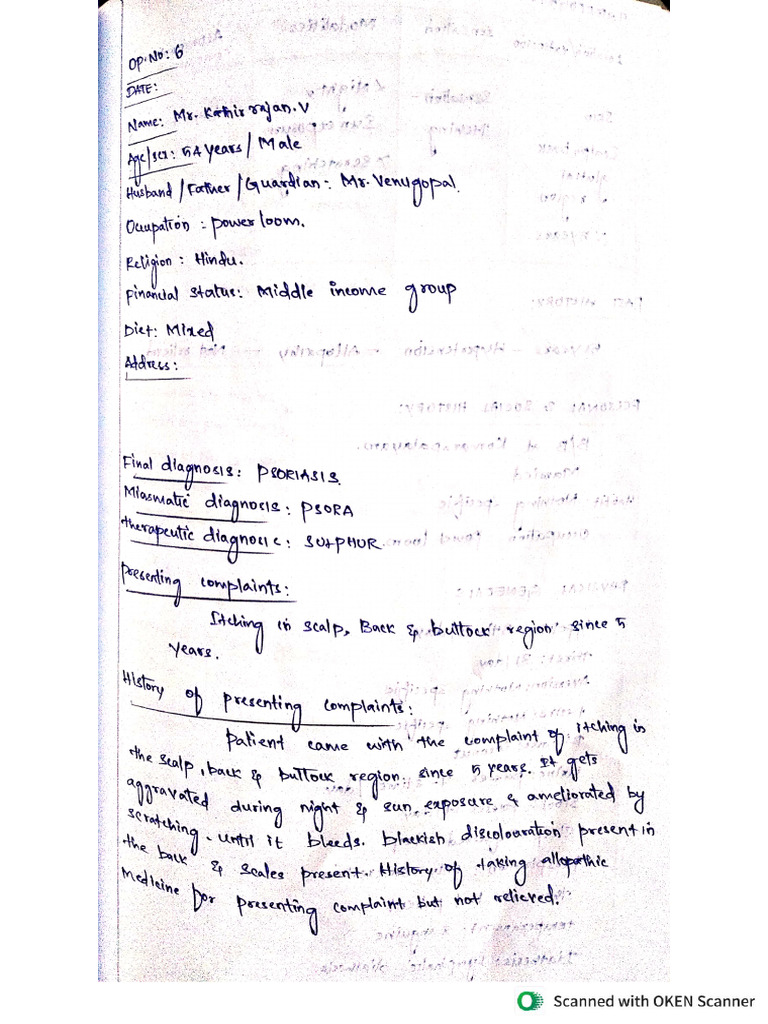 OP.No: 6
DATE:
Name: Mr. Kathir rajan. V
Age/sex: 54 years / Male
Husband / Father / Guardian: Mr. Venugopal.
Occupation : power loom.
Religion : Hindu.
Financial status: Middle income group
Diet: Mixed
Address:
Final diagnosis: PSORIASIS.
Miasmatic diagnosis: PSORA
therapeutic diagnosis: SULPHUR.
Presenting complaints:
Itching in scalp, Back & buttock region since 5
years.
History of presenting complaints:
Patient came with the complaint of itching in
the scalp, back & buttock region since 5 years. It gets
aggravated during night & sun exposure & ameliorated by
scratching until it bleeds. blackish discolouration present in
the back & scales present. History of taking allopathic
Medicine for presenting complaint but not relieved.
Scanned with OKEN Scanner